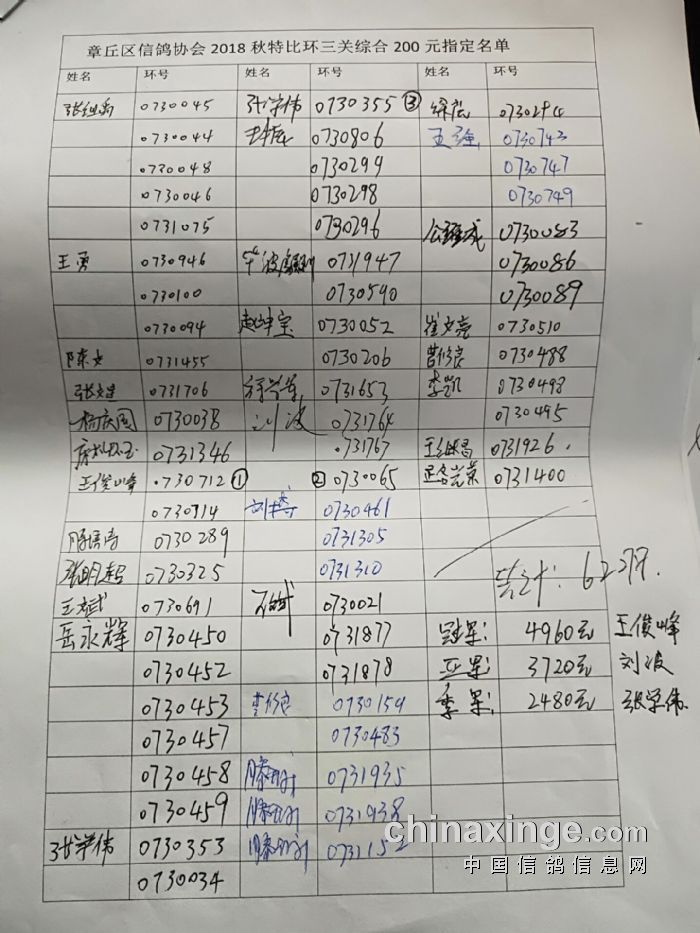 章丘区信鸽协会 2018 秋特比环三关综合 200 元指定名单
姓名 环号 姓名 环号 姓名 环号
0730045 张学伟 0730355 ③
0730044 0730806 王强 0730743
0730048 0730299 0730747
0730046 0730298 0730749
0731075 0730296 0730083
王勇 0730946 0731947 0730086
0730100 0730590 0730089
0730094 赵坤宝 0730052 崔文亮 0730510
陈文 0731455 0730206 曹修良 0730488
0731706 0731653 李凯 0730493
杨庆国 0730038 刘波 0731764 0730495
0731346 0731767 0731926
王俊峰 0730712 ① ② 0730065 0731400
0730914 0730461
0730289 0731305
张明超 0730325 0731310 共计: 62羽.
王斌 0730691 0730021
岳永辉 0730450 0731877 冠军: 4960元 王俊峰
0730452 0731878 亚军: 3720元 刘波
0730453 0730159 季军: 2480元 张学伟
0730457 0730483
0730458 0731935
0730459 0731938
张学伟 0730353 0731152
0730034
chinaxinge.com
中国信鸽信息网